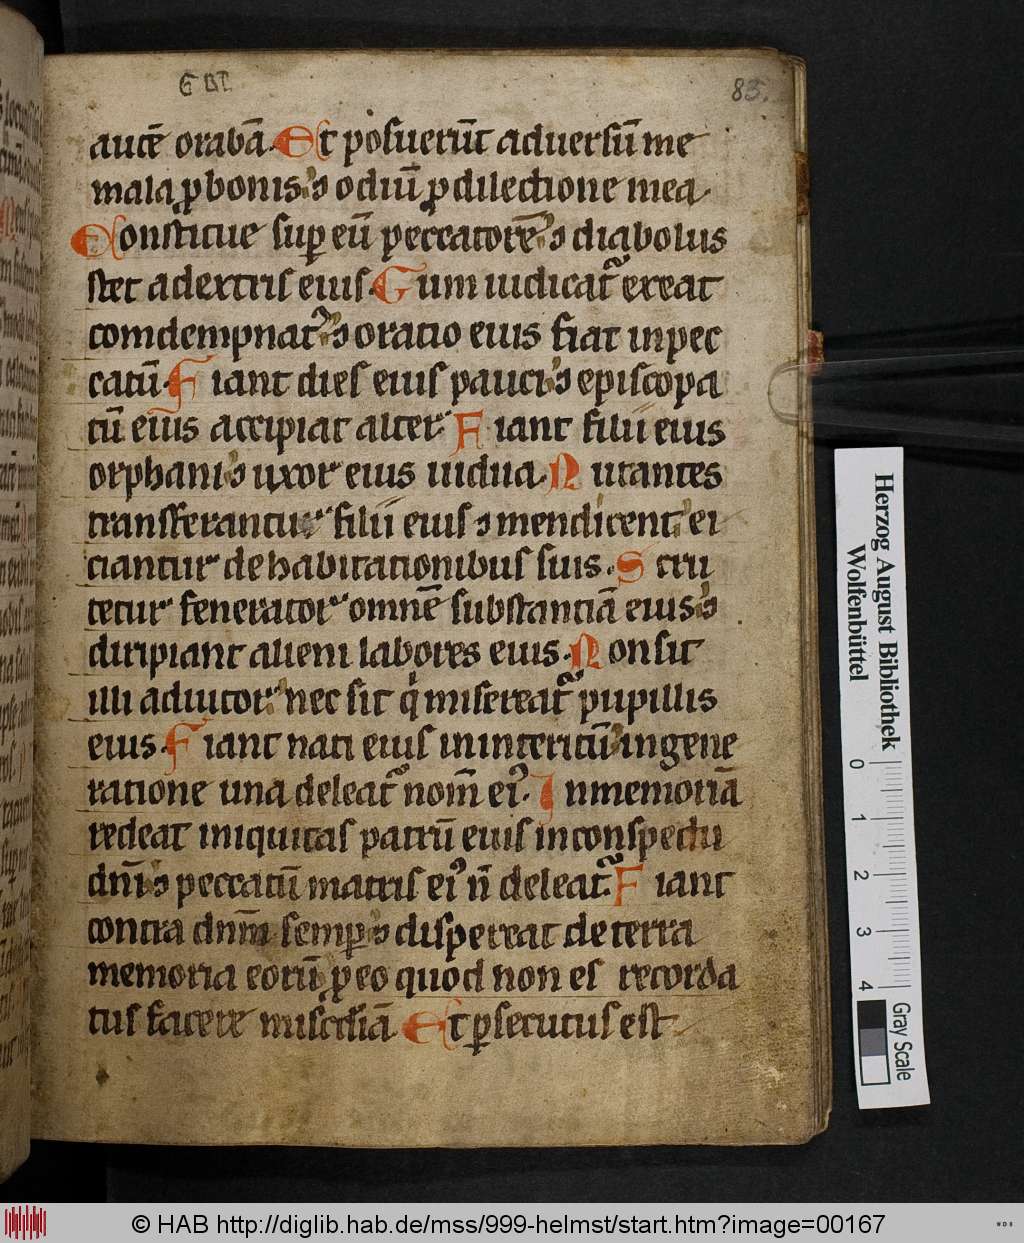 83.
autē orabā. Et posuerūt adversū me
mala ꝓ bonis ⁊ odiū ꝓ dilectione mea
Constitue suꝑ eū peccatorē ⁊ diabolus
stet adextris eius. Cum iudicat᷑ exeat
comdempnatꝰ ⁊ oratio eius fiat inpec
catū. Fiant dies eius pauci ⁊ episcopa
tū eius accipiat alter. Fiant filii eius
orphani ⁊ uxor eius uidua. Nutantes
transferantur filii eius ⁊ mendicent ei
ciantur dehabitationibus suis. Scru
tetur fenerator omnē substantiā eius ⁊
diripiant alieni labores eius. Non sit
illi adiutor nec sit qͥ misereat᷑ pupillis
eius. Fiant nati eius inīnteritū ingene
ratione una deleat᷑ nom̄ eiꝰ. Inmemoriā
redeat iniquitas patrū euis inconspectu
dn̄i ⁊ peccatū matris eiꝰ n̄ deleat᷑. Fiant
contra dnm̄ semꝑ ⁊ dispereat deterra
memoria eorū ꝓ eo quod non es recorda
tus facere misc̄diā Et ꝑsecutus est
Herzog August Bibliothek
Wolfenbüttel
0 1 2 3 4
Gray Scale
© HAB http://diglib.hab.de/mss/999-helmst/start.htm?image=00167